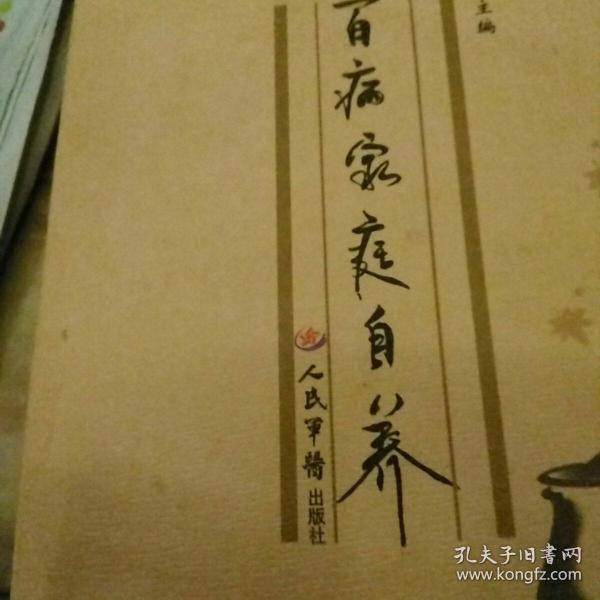 主编
百病家庭自养
人民军醫出版社
孔夫子旧書网
www.kongfz.com